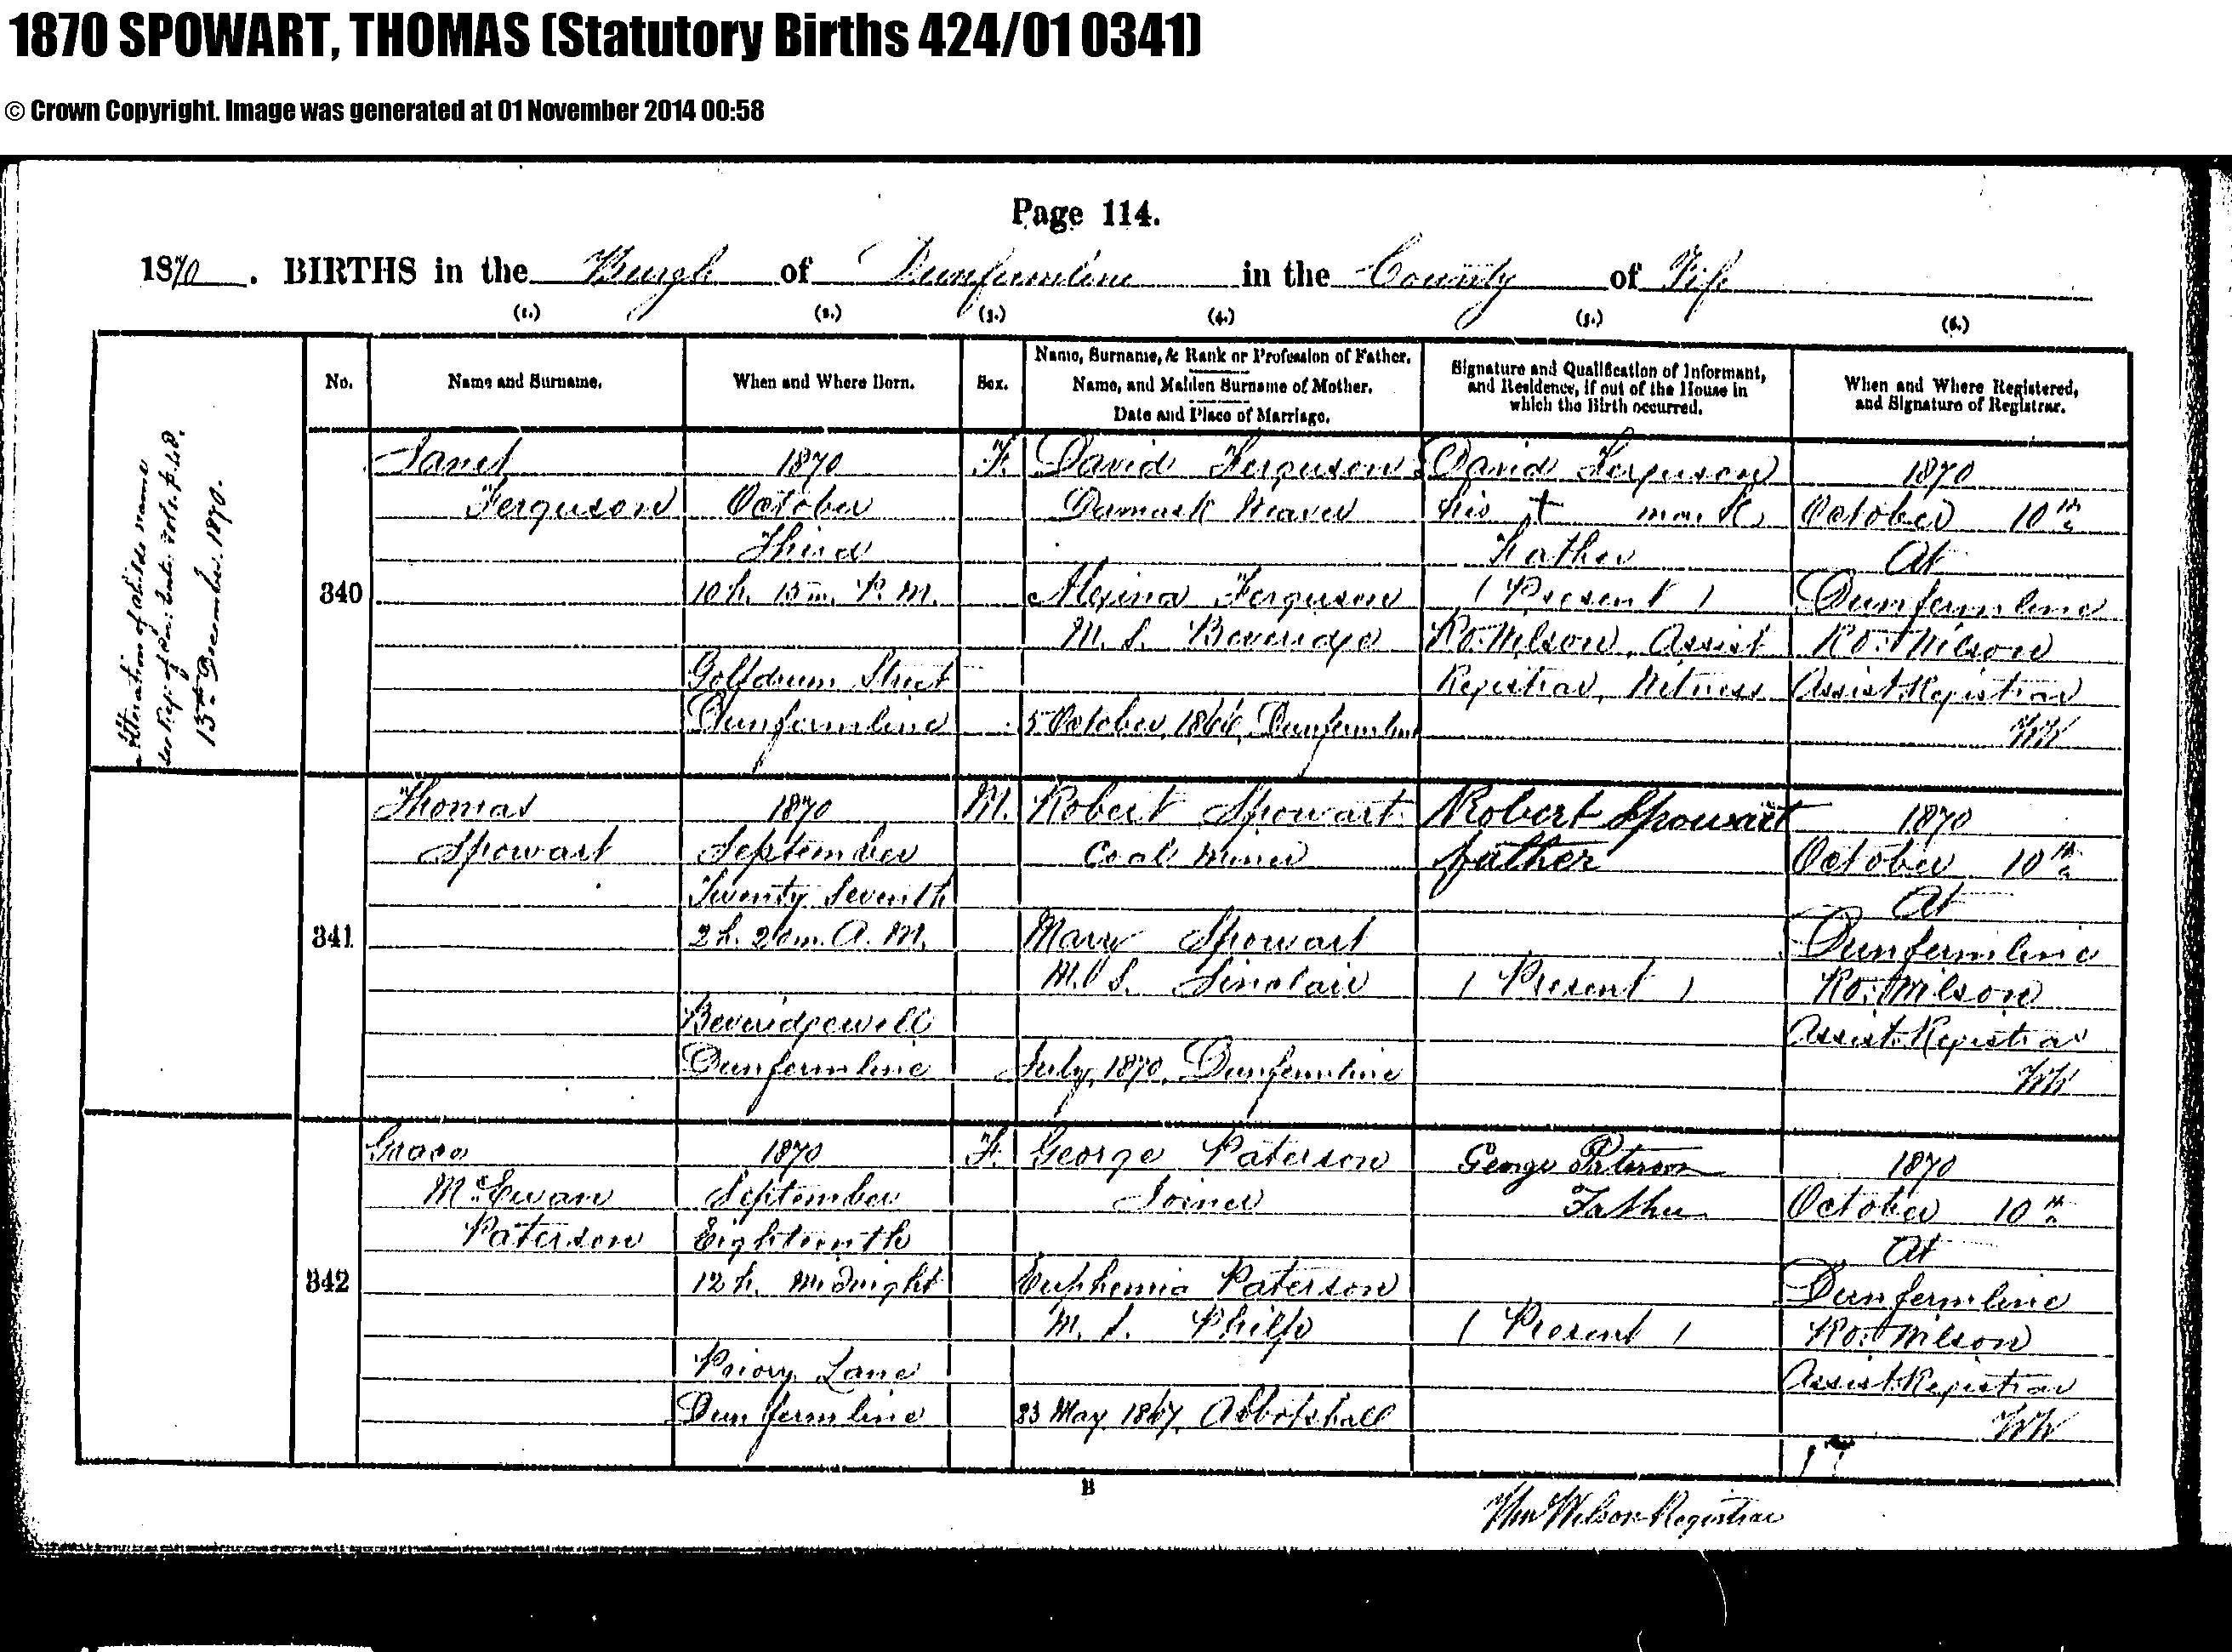 1870 SPOWART, THOMAS (Statutory Births 424/01 0341)
© Crown Copyright. Image was generated at 01 November 2014 00:58
Page 114.
1870. BIRTHS in the Burgh of Dunfermline in the County of Fife
(1.) (2.) (3.) (4.) (5.) (6.)
No.
Name and Surname.
When and Where Born.
Sex.
Name, Surname, & Rank or Profession of Father.
Name, and Maiden Surname of Mother.
Date and Place of Marriage.
Signature and Qualification of Informant,
and Residence, if out of the House in
which the Birth occurred.
When and Where Registered,
and Signature of Registrar.
Alteration of childs name
See Reg. of Cor. Ent. Vol. p. 48.
15th December. 1870.
340
Janet
Ferguson
1870
October
Third
10 h. 15 m. P. M.
Golfdrum Street
Dunfermline
F.
David Ferguson
Damask Weaver
Alexina Ferguson
M. S. Beveridge
5 October, 1866, Dunfermline
David Ferguson
his + mark
Father
( Present )
Ro. Wilson, Assist
Registrar, Witness
1870
October 10th
At
Dunfermline
Ro: Wilson
Assist. Registrar
WW
341
Thomas
Spowart
1870
September
Twenty Seventh
2 h. 20 m. A. M.
Beveridgewell
Dunfermline
M.
Robert Spowart
Coal Miner
Mary Spowart
M. S. Sinclair
July, 1870, Dunfermline
Robert Spowart
father
( Present )
1870
October 10th
At
Dunfermline
Ro: Wilson
Assist. Registrar
WW
342
Grace
McEwan
Paterson
1870
September
Eighteenth
12 h. Midnight
Priory Lane
Dunfermline
F.
George Paterson
Joiner
Euphemia Paterson
M. S. Philp
23 May, 1867, Abbotshall
George Paterson
Father
( Present )
1870
October 10th
At
Dunfermline
Ro: Wilson
Assist. Registrar
WW
B
Wm Wilson Registrar